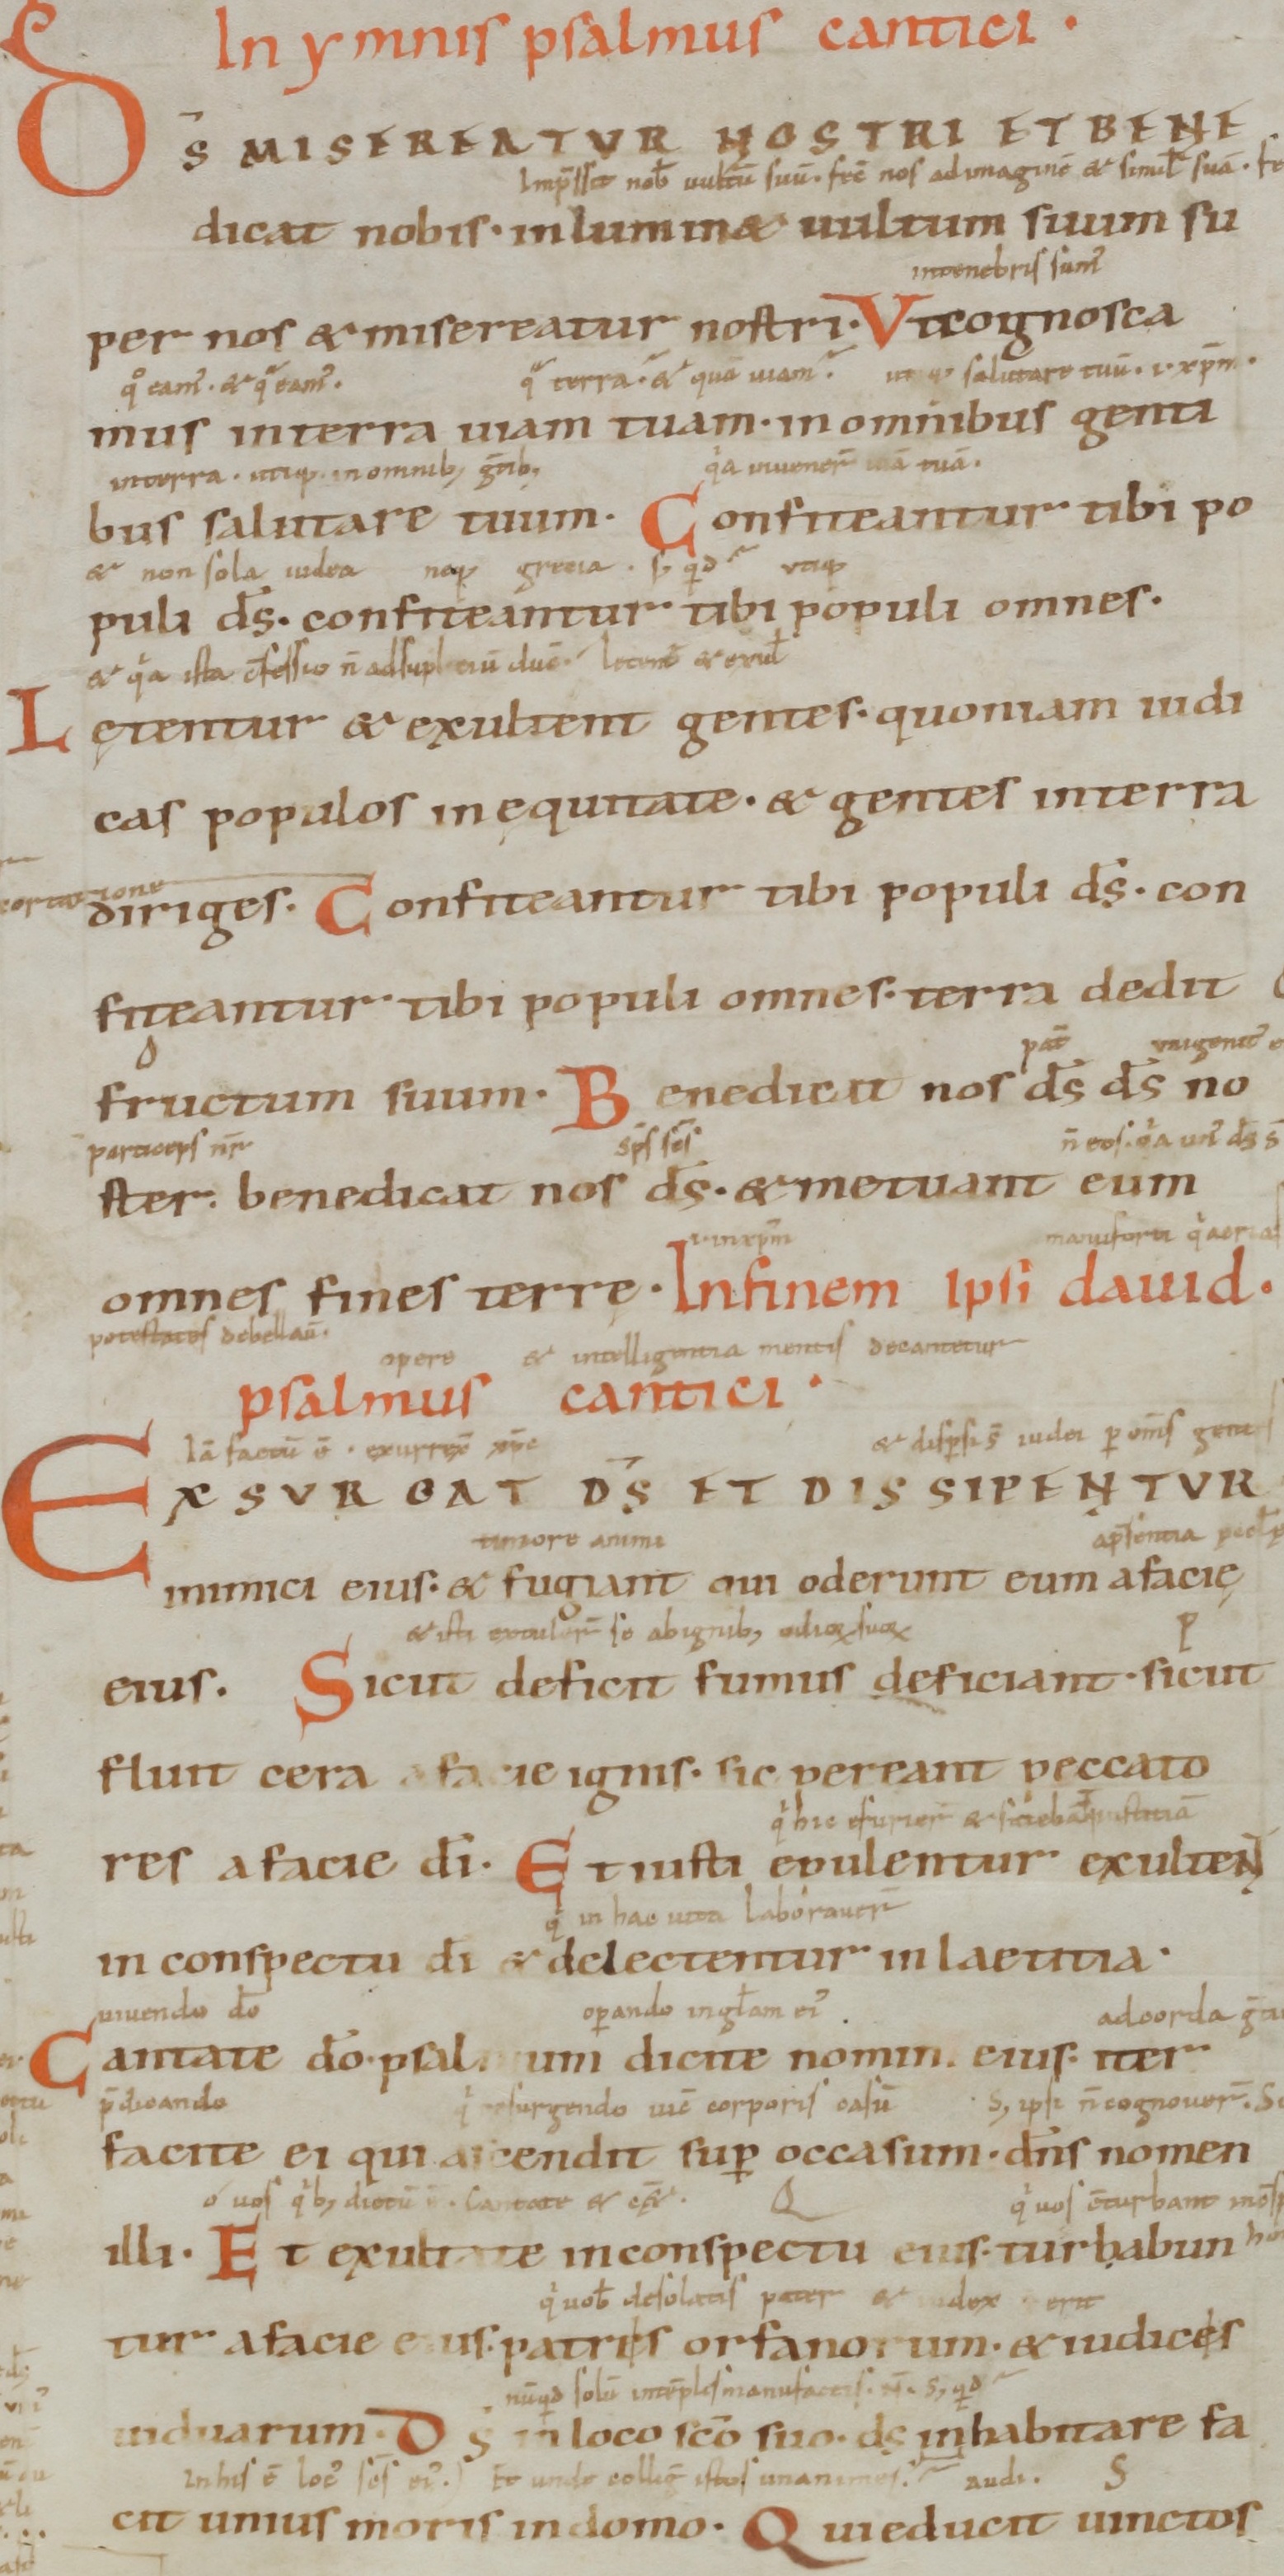 In ymnis psalmus cantici ·
D̅S MISEREATVR NOSTRI ET BENE
Imp̄ssit nob̄ uultū suū · frē nos ad imaginē & simil̄ suā ·
dicat nobis · inlumin& uultum suum su
intenebris sum᷒
per nos & misereatur nostri · Vt cognosca
qͦ eam᷒ · & qͣ eam᷒ · qͣ terra · & quā uiam · salutare tuū · i · xp̄m ·
mus in terra uiam tuam · in omnibus genti
in terra · utiqꝫ · in omnibꝫ gētibꝫ qͥa inuener̄ uiā tuā ·
bus salutare tuum · Confiteantur tibi po
& non sola iudea neqꝫ grecia · sꝫ qͥd utiqꝫ
puli d̅s · confiteantur tibi populi omnes ·
& qͥa ista c̄fessio n̄ ad supliciū duc̄ · letent᷒ & exult᷒
Lętentur & exultent gentes · quoniam iudi
cas populos in ęquitate · & gentes in terra
diriges · Confiteantur tibi populi d̅s · con
fiteantur tibi populi omnes · terra dedit
fructum suum · Benedicat nos d̅s d̅s no
pat̄ unigenit᷒
particeps nr̄ sp̄s sc̄s n̄ eos · qͥa un᷒ d̅s
ster · benedicat nos d̅s · & metuant eum
i · in xp̄m manuforti qͥ aerias
omnes fines terrę · In finem Ipsi dauid ·
potestates debellau̅ ·
opere & intelligentia mentis decantetur
psalmus cantici ·
Iā factū ē · exurrex̄ xp̄c & disp̄si s̄ iudei ꝑ om̄s gentes
EXSVRGAT D̅S ET DISSIPENTVR
timore animi a p̄sentia
inimici eius · & fugiant qui oderunt eum a facie
& isti extuler̄ se ab ignibꝫ odioꝝ suoꝝ
eius · Sicut deficit fumus deficiant · sicut
fluit cera a facie ignis · sic pereant peccato
qͥ hic esurier̄ & sitiebant iustitiā
res a facie d̅i · Et iusti epulentur exulteN̄
qͥ in hac uita laborauer̄
in conspectu d̅i & delectentur in laetitia ·
uiuendo d̅o operando in gl̄am ei᷒ ad corda
Cantate d̅o · psalmum dicite nomini eius · iter
p̄dicando qͥ resurgendo uic̄ corporis casū · Sꝫ ipsi n̄ cognouer̄ ·
facite ei qui ascendit suꝑ occasum · dn̄s nomen
o uos qͥbꝫ dictū ē · Cantate & c&̄ · qͥ uos c̄turbant
illi · Et exultate in conspectu eius · turbabun
qͥ uob̄ desolatis pater & iudex erit
tur a facie eius · patris orfanorum · & iudices
nūqͥd solū in tēplis manufactis · n̄ · Sꝫ qͥd
uiduarum · D̅s in loco sc̄o suo · d̅s inhabitare fa
In his ē loc᷒ sc̄s ei᷒ · Et unde colliḡ istos unanimes · audi ·
cit unius moris in domo · Qui educit uinctos